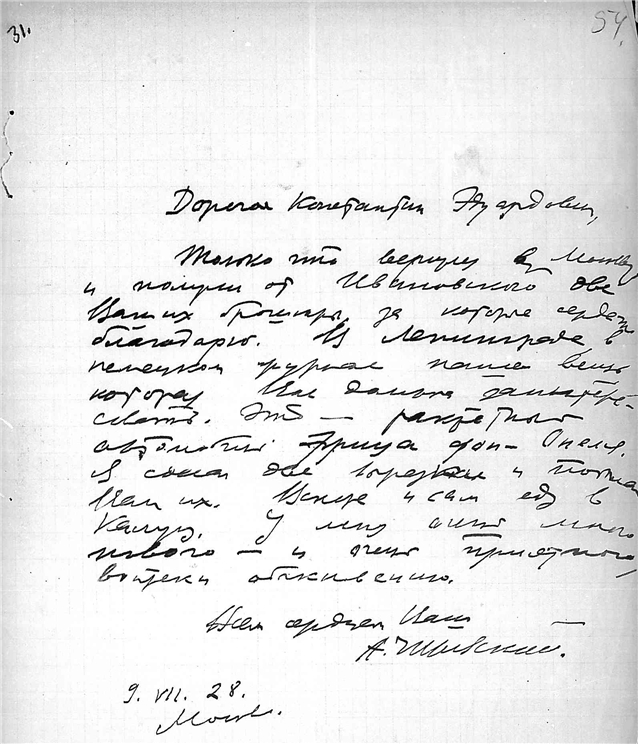 31.
54.
Дорогой Константин Эдуардович,
Только что вернулся в Москву
и получил от Ивановского две
Ваших брошюры, за которые сердечно
благодарю. В Ленинграде в
немецком журнале нашел вещь
которая Вас должна заинтере-
совать. Это — ракетный
автомобиль Фрица фон-Опеля.
Я сделал две вырезки и
Вам их. Вскоре и сам еду в
Калугу. У меня очень много
нового — и очень приятного,
вопреки обыкновению.
Всем сердцем Ваш
А. Чижевский.
9. VII. 28.
Москва.